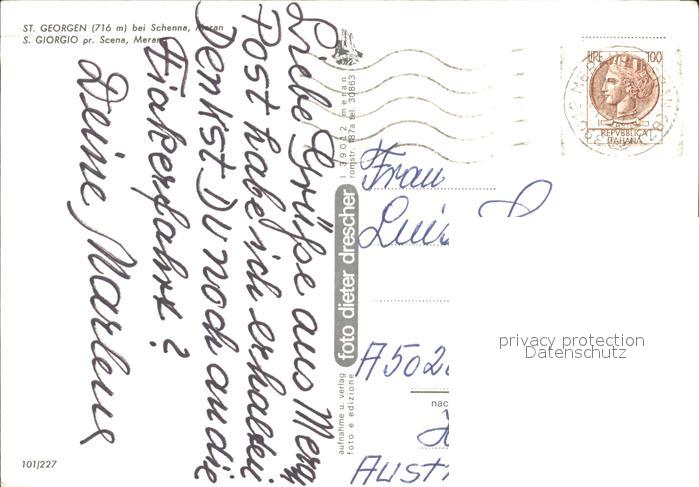 ST. GEORGEN (716 m) bei Schenna, Meran
S. GIORGIO pr. Scena, Meran
Liebe Grüße aus Meran
Post habe ich erhalten
Denkst DU noch an die
Fiakerfahrt?
Deine Marlene
101/227
aufnahme u. verlag
foto e edizione
foto dieter drescher
I 39012 meran
romstr. 187a tel. 30863
LIRE 100
REPVBBLICA
ITALIANA
Frau
A502
nac
Aust
privacy protection
Datenschutz